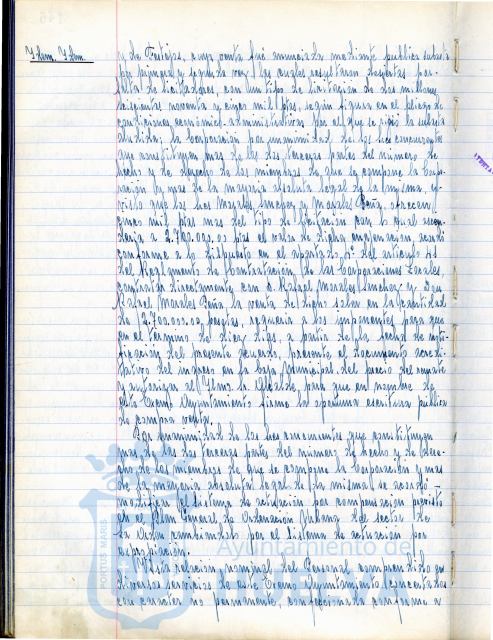 Idem. Idem.
y de Festejos, cuya venta fué anunciada mediante publica subasta
por primera y segunda vez las cuales resultaron desiertas por
falta de licitadores, con un tipo de licitación de dos millones
seiscientas noventa y cinco mil ptas, según figura en el pliego de
condiciones económico-administrativas por el que se rigió la subasta
aludida, la Corporación por unanimidad de los tres concurrentes
que constituyen mas de las dos terceras partes del número de
hecho y de derecho de los miembros de que se compone la Corpo-
ración y mas de la mayoria absoluta legal de la misma,
visto que los Sres Morales Sanchez y Morales Peña, ofrecen
cinco mil ptas mas del tipo de licitación con lo qual ascen-
deria a 2.700.000,00 ptas el valor de dicha enajenación acordó
conforme a lo dispuesto en el apartado 4º del articulo 41
del Reglamento de Contratación de las Corporaciones Locales,
contratar directamente con D. Rafael Morales Sanchez y Don
Rafael Morales Peña la venta de dicho solar en la cantidad
de 2.700.000,00 pesetas, requerir a los imponentes para que
en el termino de diez dias, a partir de la fecha de noti-
ficación del presente acuerdo, presente el documento acredi-
tativo del ingreso en la Caja Municipal del precio del remate
y autorizar al Iltmo Sr Alcalde para que en nombre de
este Excmo Ayuntamiento firme la oportuna escritura publica
de compra venta.
Por unanimidad de los tres concurrentes, que constituyen
mas de las dos terceras partes del número de hecho y de dere-
cho de los miembros de que se compone la Corporación y mas
de la mayoria absoluta legal de la misma, se acordó
modificar el sistema de actuación por compensación previsto
en el Plan General de Ordenación Urbana del sector de
La Orden cambiandolo por el sistema de actuación por
expropiación.
Vista relación nominal del Personal comprendido en
diversos servicios de este Excmo Ayuntamiento, conceptuados
con caracter no permanente, confeccionada conforme a
PORTUS MARIS
Ayuntamiento de
HUELVA